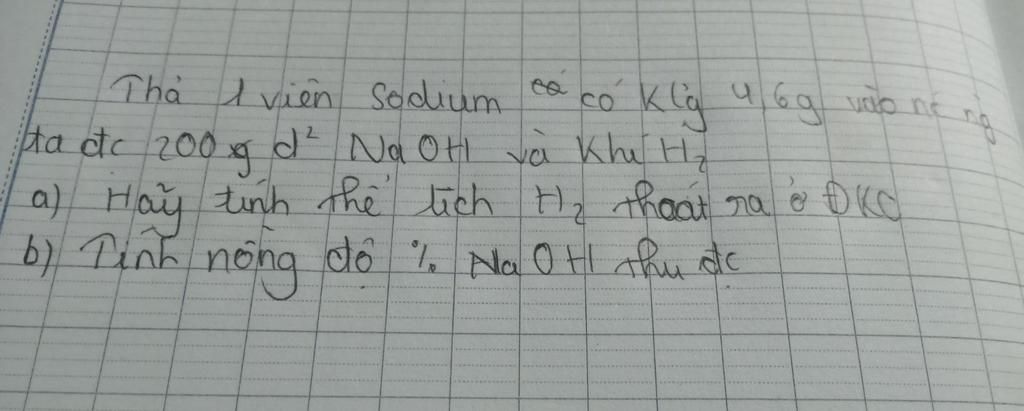 Thả 1 viên Sodium có có Klg 4,6g vào nc ng
ta đc 200g d² NaOH và khí H₂
a) Hãy tính thể tích H₂ thoát ra ở ĐKC
b) Tính nồng độ % NaOH thu đc